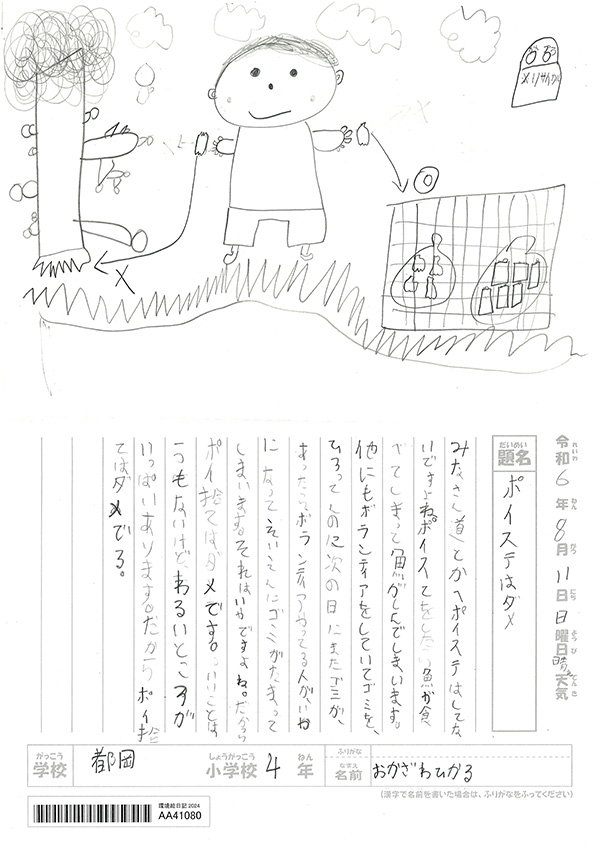 メリサイクル
×
×
◎
令和6年8月11日日曜日晴天気
れいわ ねん がつ にち ようび てんき
だいめい
題名
ポイステはダメ
みなさん道とかへポイステはしてな
いですよね。ポイステをしたら魚が食
べてしまって魚がしんでしまいます。
他にもボランティアをしていてゴミを、
ひろってんのに次の日にまたゴミが、
あったらボランティアやってる人が、いや
になってえいえんにゴミがたまって
しまいます。それはいやですよね。だから
ポイ捨てはダメです。いいことは
一つもないけど、わるいところが
いっぱいあります。だからポイ捨
てはダメでる。
がっこう
学校
都岡
しょうがっこう
小学校
4
ねん
年
ふりがな
なまえ
名前
おかざわひかる
(漢字で名前を書いた場合は、ふりがなをふってください)
環境絵日記2024
AA41080